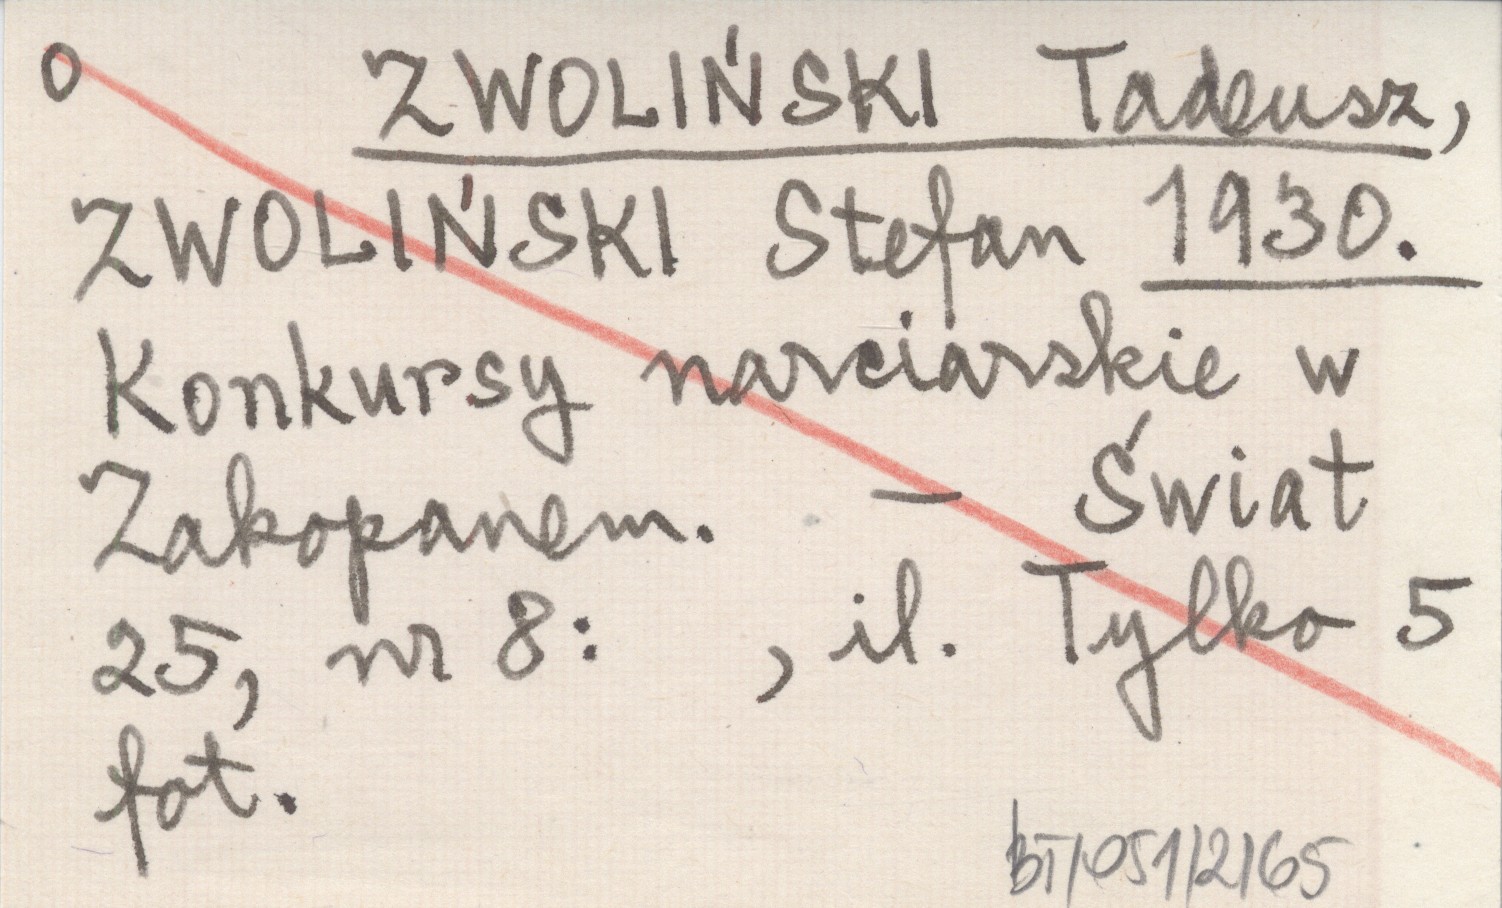 O ZWOLIŃSKI Tadeusz,
ZWOLIŃSKI Stefan 1930.
Konkursy narciarskie w
Zakopanem. — Świat
25, nr 8: , il. Tylko 5
fot.
BT/051/2/65